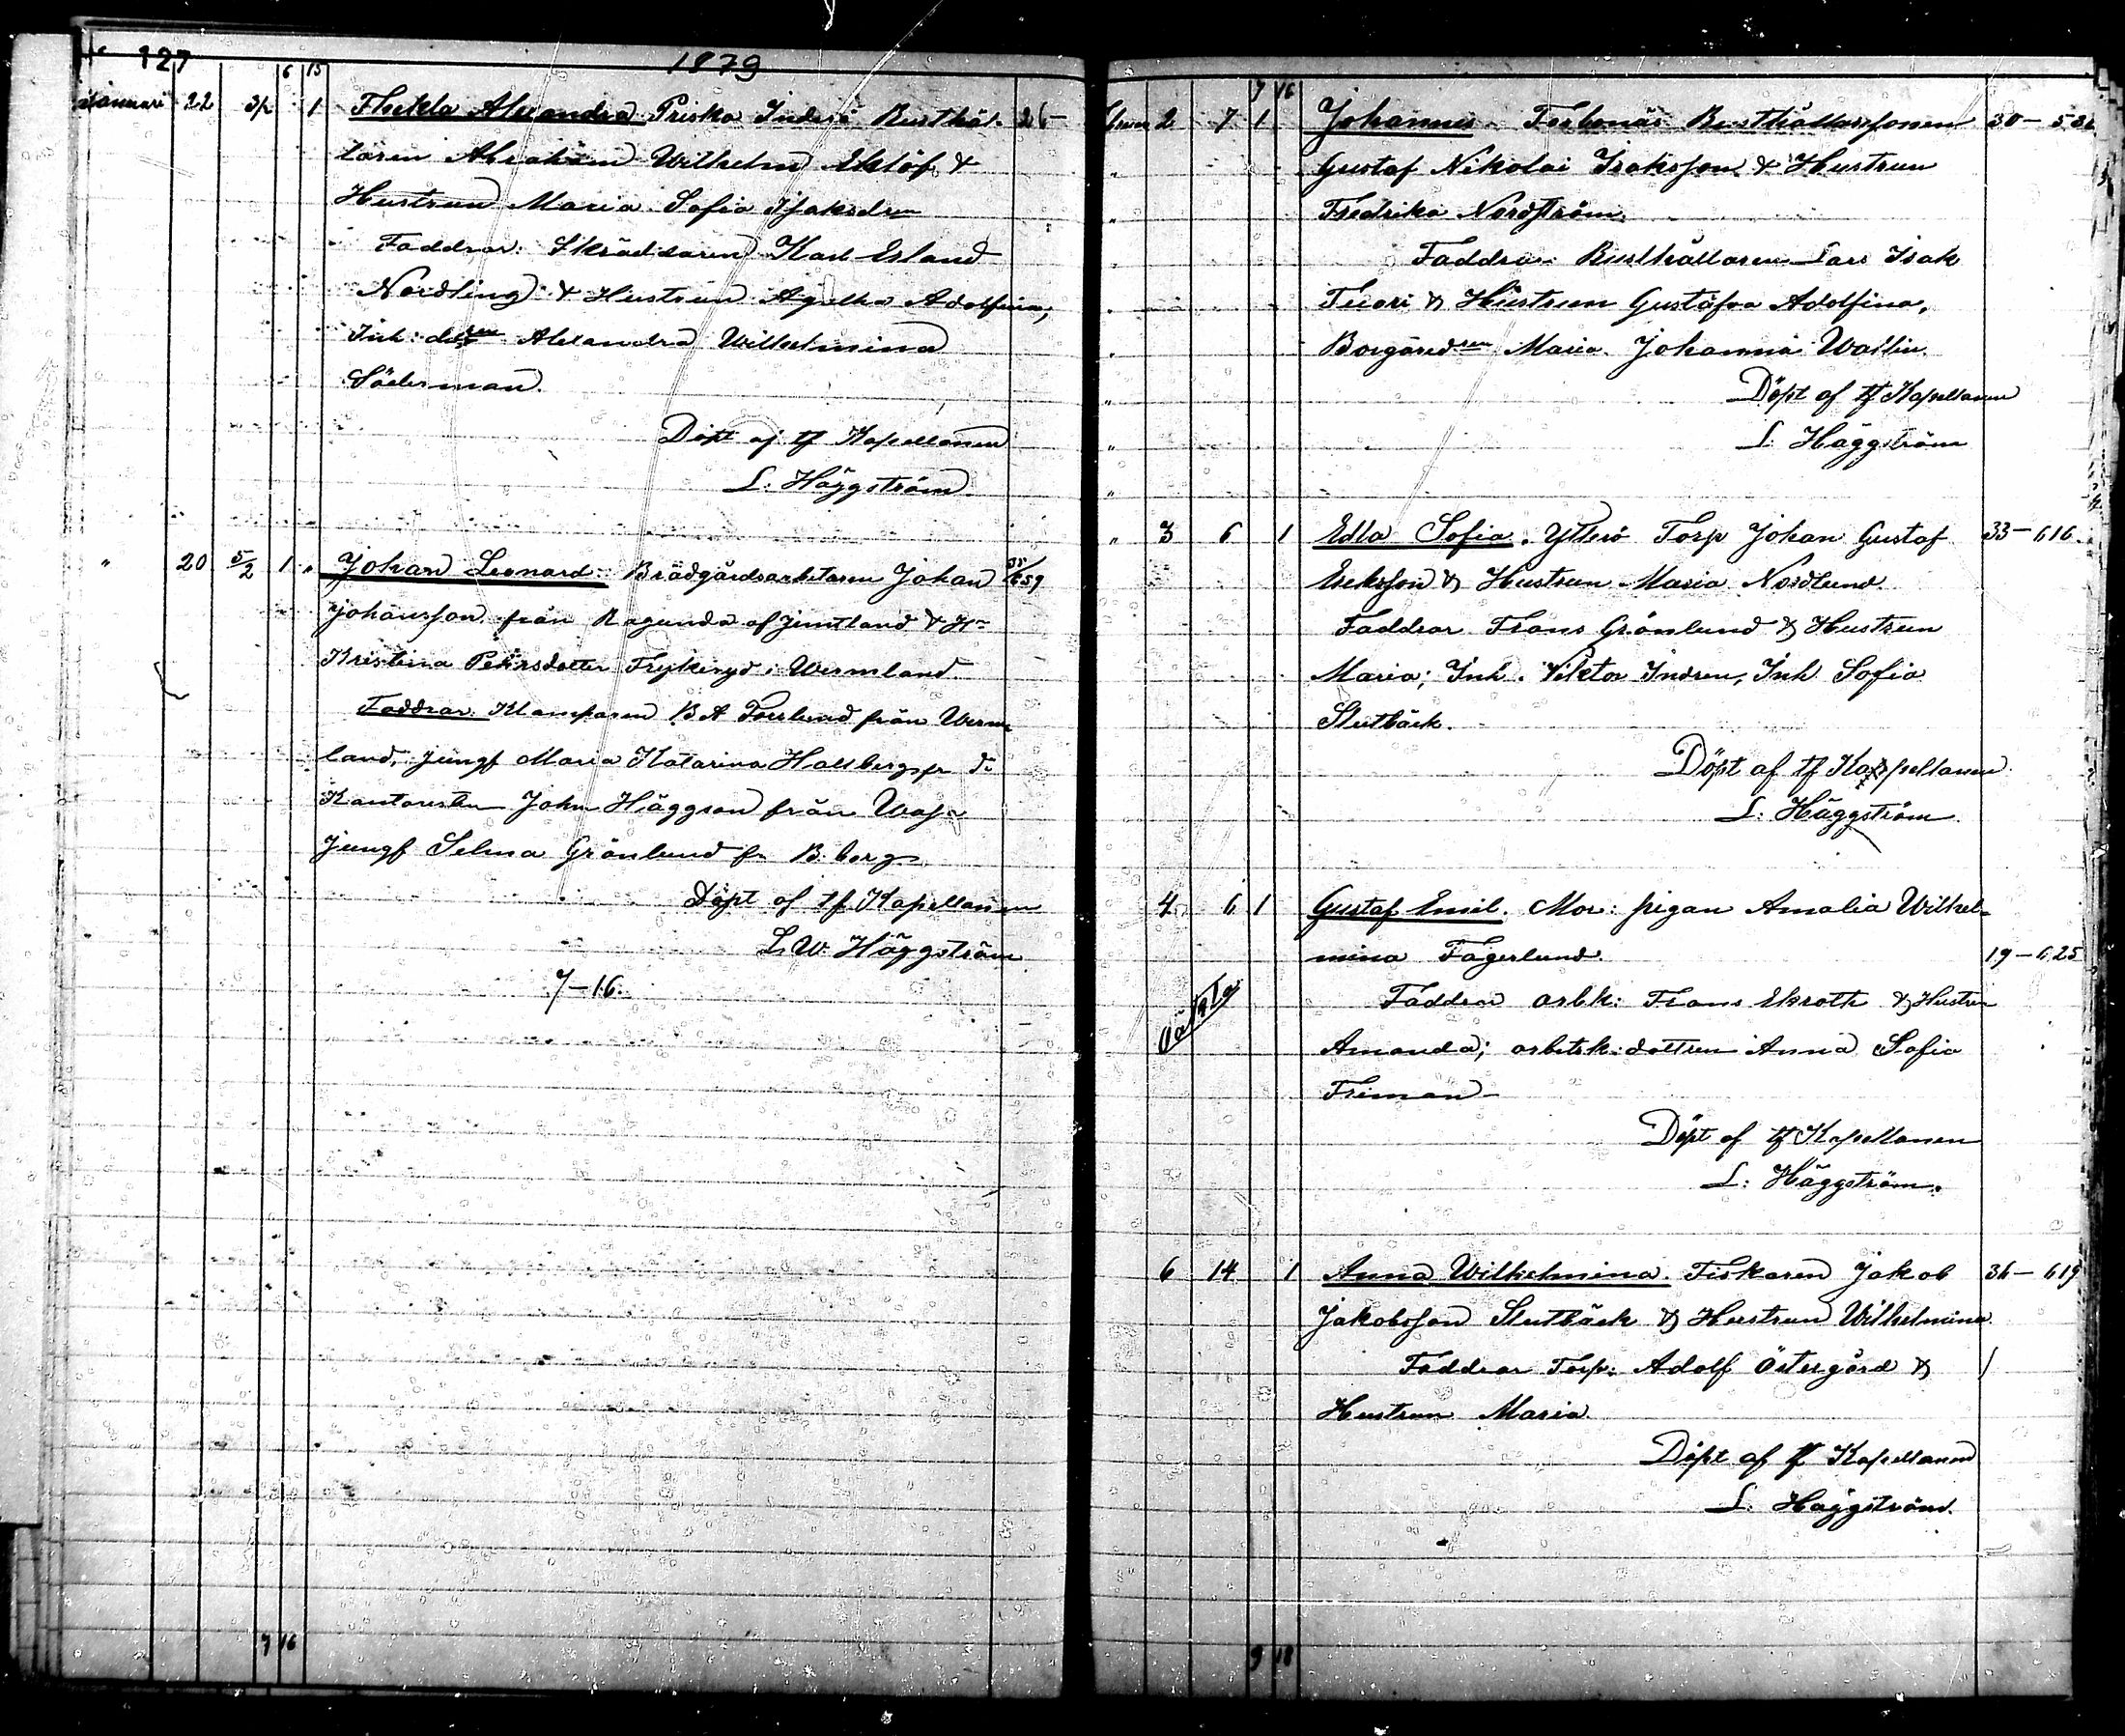 127
1879
6 15
Januari 22 1 Thekla Alexandra Priska Inderö Rusthål- 26-
laren Abraham Wilhelm Eklöf &
Hustrun Maria Sofia Isaksdrn
Faddrar: Skräddaren Karl Erland
Nordling & Hustrun Agatha Adolfina,
Inh: drn Alexandra Wilhelmina
Söderman.
Döpt af tf Kapellanen
L. Häggström
" 20 5/2 1 " Johan Leonard. Brädgårdsarbetaren Johan 659
Johansson från Ragunda af Jemtland &
Kristina Persdotter Frykeryd i Wermland.
Faddrar. Klamparen B A Forslund från Werm
land, Jungf Maria Katarina Hallberg fr d:
Kantoristen John Häggson från
Jungf Selma Grönlund fr B. borg
Döpt af tf Kapellanen
L. W. Häggström
7-16.
7 16
7 16
2 7 1 Johannes Torbonäs Rusthållaresonen 30-
Gustaf Nikolai Isaksson & Hustrun
" Fredrika Nordström.
" Faddrar Rusthållaren Lars Isak
" Tuori & Hustrun Gustafva Adolfina,
" Borgaredrn Maria Johanna Wallin.
" Döpt af tf Kapellanen
" L: Häggström
"
" 3 6 1 Edla Sofia. Ytterö Torp Johan Gustaf 33-616.
Eriksson & Hustrun Maria Nordlund.
Faddrar Frans Grönlund & Hustrun
Maria; Inh. Viktor Indren, Inh Sofia
Slutbäck.
Döpt af tf Kappellanen
L: Häggström
4 6 1 Gustaf Emil. Mor: pigan Amalia Wilhel-
mina Fagerlund. 19-625
oäkta Faddrar arbk: Frans Ekroth & Hustrun
Amanda; arbetsk: dottren Anna Sofia
Friman-
Döpt af tf Kapellanen
L: Häggström.
6 14 1 Anna Wilhelmina. Fiskaren Jakob 36-619
Jakobsson Slutbäck & Hustrun Wilhelmina
Faddrar Torp: Adolf Östergård &
Hustrun Maria.
Döpt af tf Kapellanen
L. Häggström.
9 18